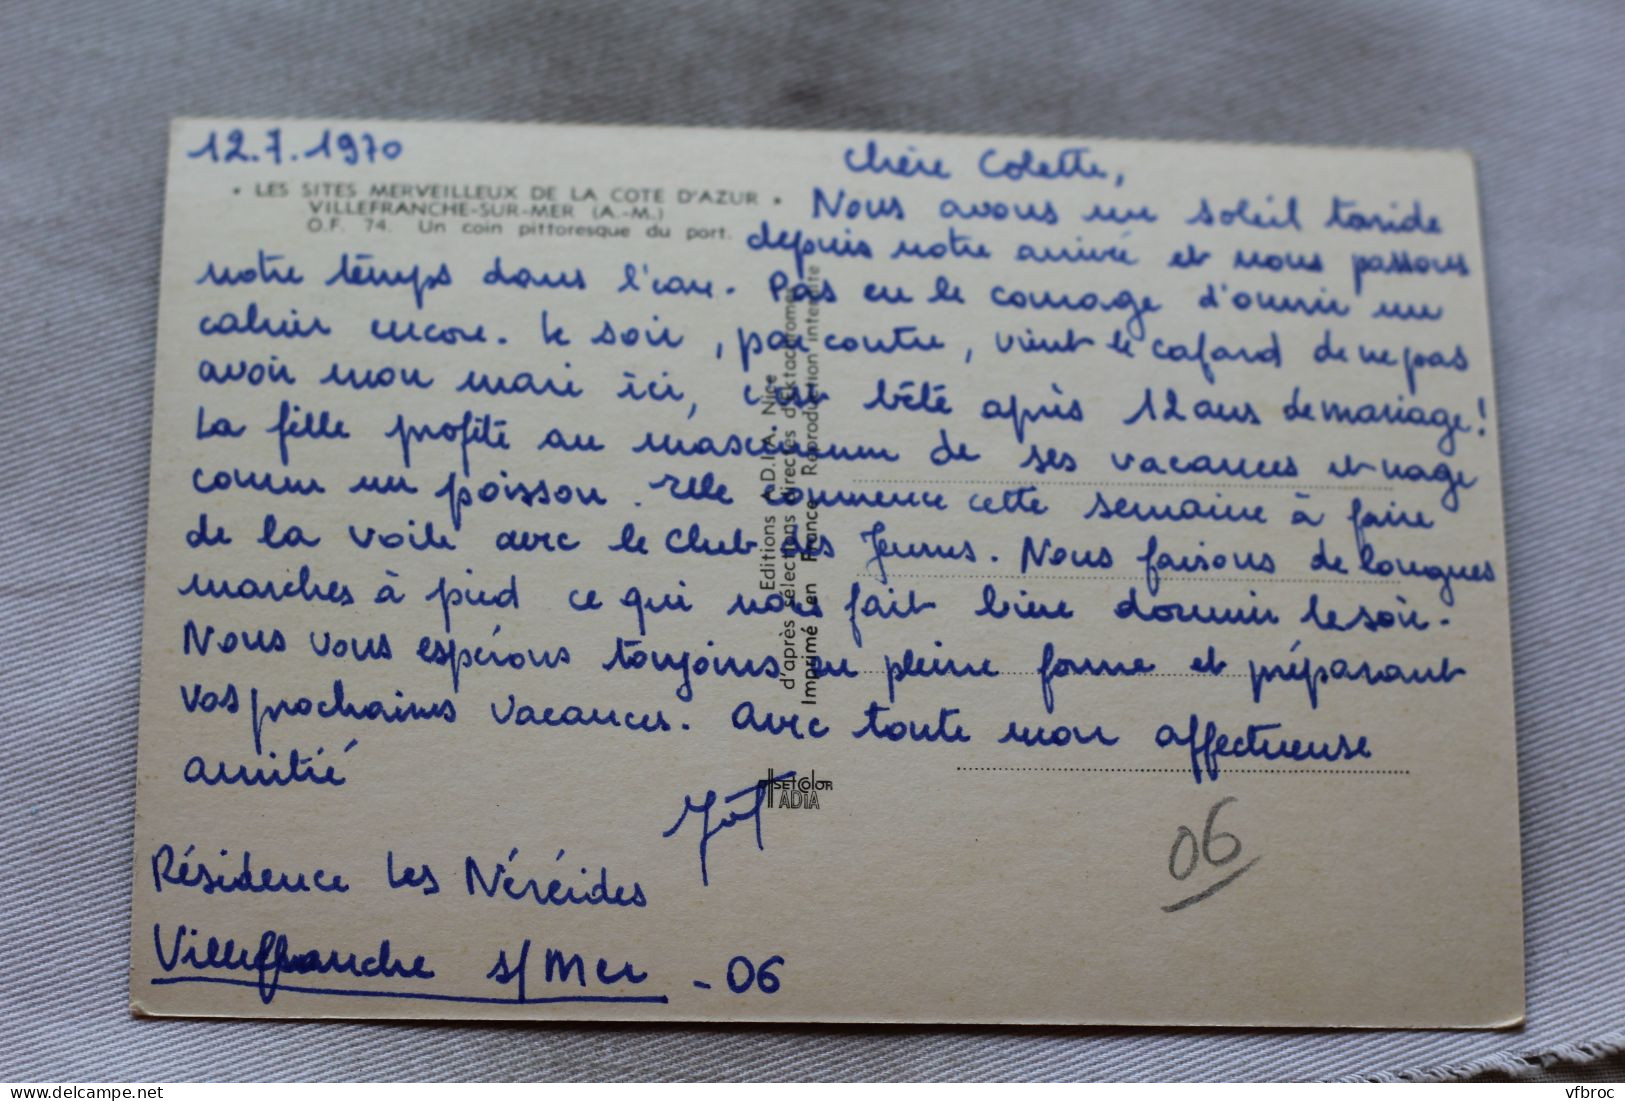 12.7.1970
• LES SITES MERVEILLEUX DE LA COTE D'AZUR •
VILLEFRANCHE-SUR-MER (A.-M.)
O.F. 74. Un coin pittoresque du port.
Chère Colette,
Nous avons un soleil torride
depuis notre arrivée et nous passons
notre temps dans l'eau. Pas eu le courage d'ouvrir un
cahier encore. Le soir, par contre, vient le cafard de ne pas
avoir mon mari ici, c'est bête après 12 ans de mariage!
La fille profite au maximum de ses vacances et nage
comme un poisson. Elle commence cette semaine à faire
de la voile avec le Club des Jeunes. Nous faisons de longues
marches à pied ce qui nous fait bien dormir le soir.
Nous vous espérons toujours en pleine forme et préparant
vos prochaines vacances. Avec toute mon affectueuse
amitié
Résidence Les Néréides
Villefranche s/Mer - 06
Editions A.D.I.A. Nice
d'après sélections directes d'Ektachromes
Imprimé en France Reproduction interdite
COLOR
ADIA
06
vfbroc